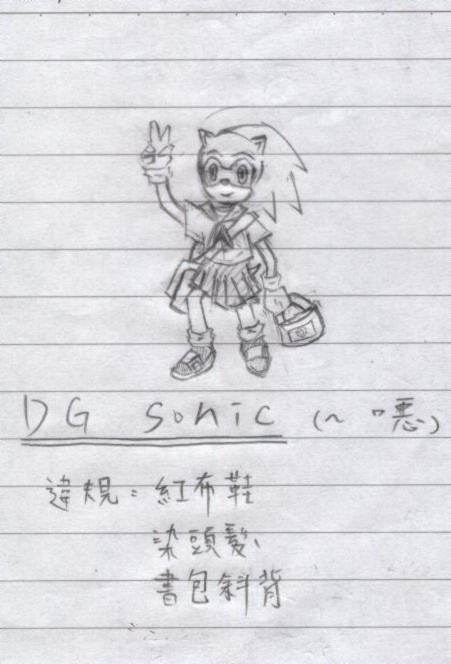 DG Sonic (~噁)
違規：紅布鞋
染頭髮
書包斜背